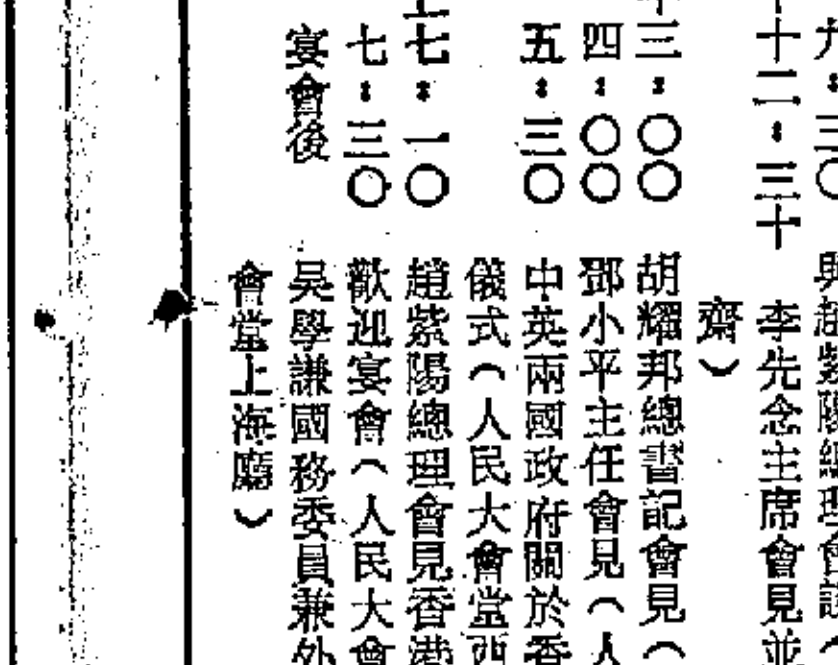 九：三〇　與趙紫陽總理會談（
十二：三十　李先念主席會見並
齋）
三：〇〇　胡耀邦總書記會見（
四：〇〇　鄧小平主任會見（人
五：三〇　中英兩國政府關於香
儀式（人民大會堂西
七：一〇　趙紫陽總理會見香港
七：三〇　歡迎宴會（人民大會
宴會後　吳學謙國務委員兼外
會堂上海廳）